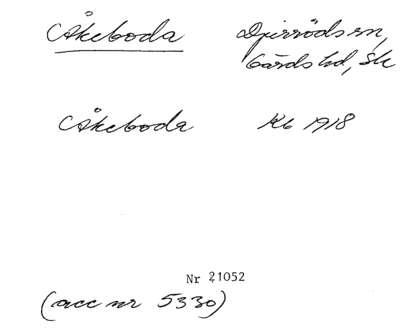 Åkeboda Djurröds sn,
Gärds hd, Sk
Åkeboda Kb 1918
Nr 21052
(acc nr 5330)